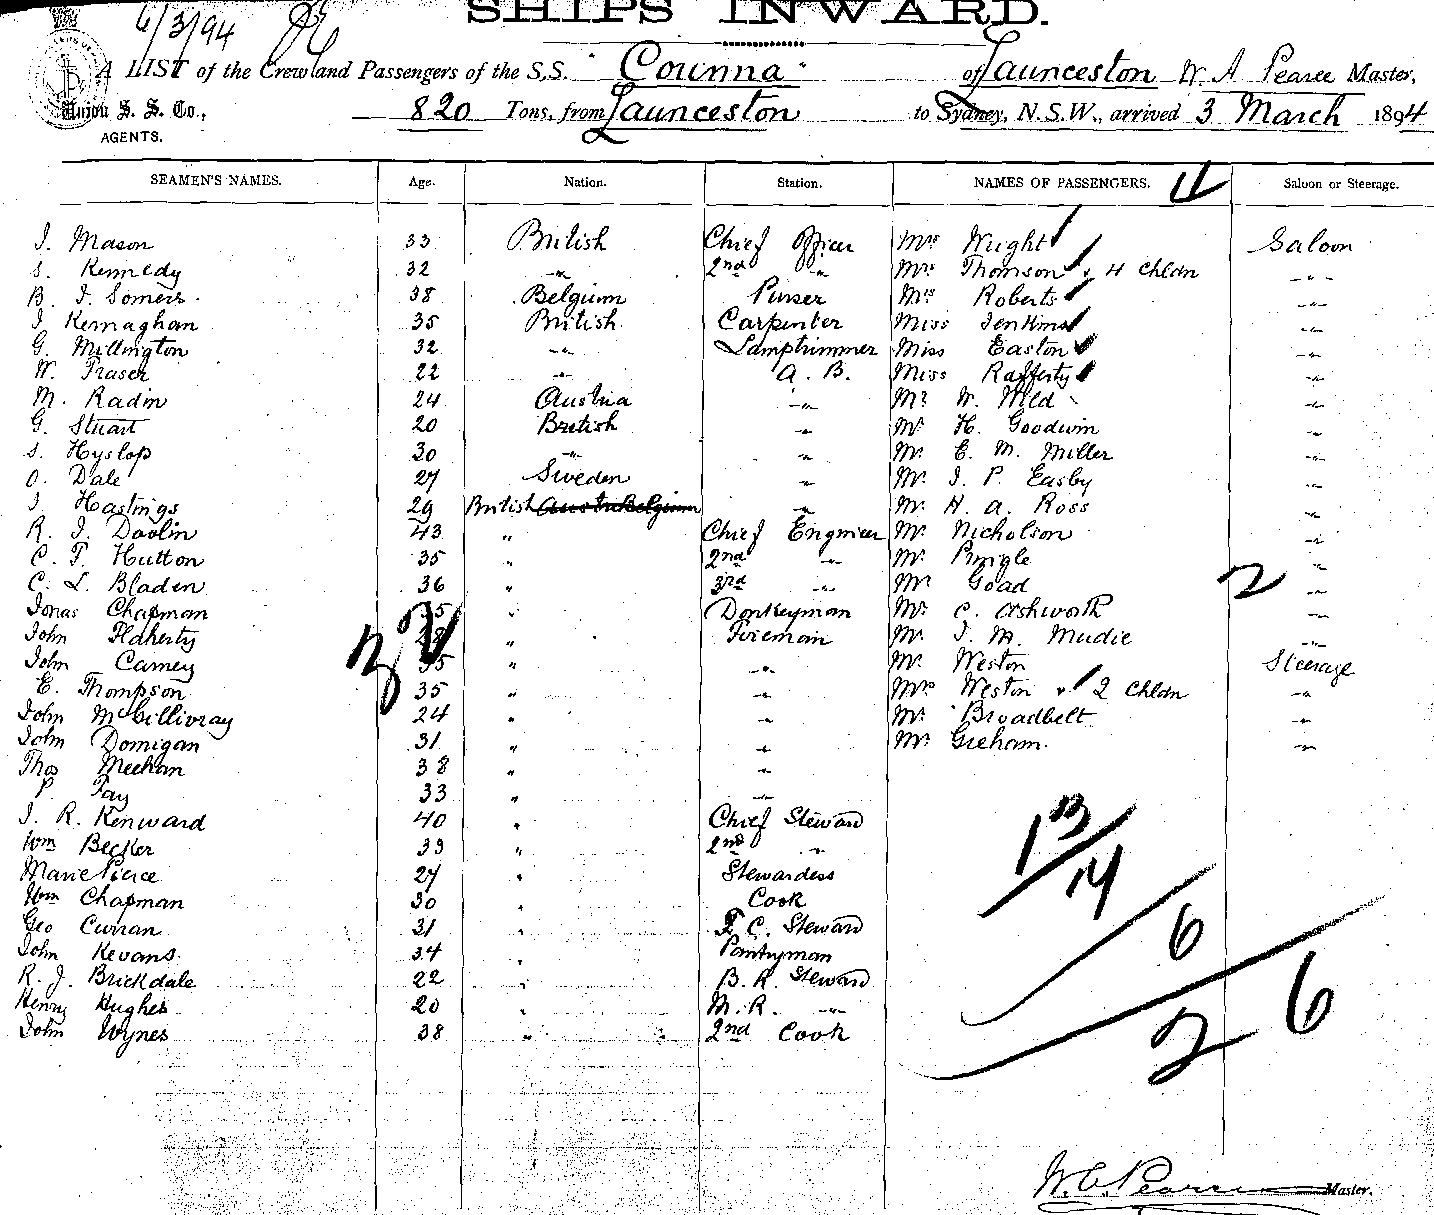 SHIPS INWARD.
6/3/94
A LIST of the Crew and Passengers of the S.S. "Corinna" of Launceston W. A Pearce Master,
Union S. S. Co., 820 Tons, from Launceston to Sydney, N.S.W., arrived 3 March 1894
AGENTS.
SEAMEN'S NAMES. Age. Nation. Station. NAMES OF PASSENGERS. Saloon or Steerage.
J. Mason 33 British Chief Officer Mrs Wright Saloon
S. Kennedy 32 -"- 2nd -"- Mrs Thomson & 4 Chldn -"-
B. J. Somers 38 Belgium Purser Mrs Roberts -"-
J. Kernaghan 35 British Carpenter Miss Jenkins -"-
G. Millington 32 -"- Lamptrimmer Miss Easton -"-
W. Fraser 22 -"- A. B. Miss Rafferty -"-
M. Radin 24 Austria -"- Mr W. Wild -"-
G. Stuart 20 British -"- Mr H. Goodwin -"-
S. Hyslop 30 -"- -"- Mr. E. M. Miller -"-
O. Dale 27 Sweden -"- Mr. J. P. Easby -"-
J. Hastings 29 British -"- Mr. H. A. Ross -"-
R. J. Davlin 43 " Chief Engineer Mr Nicholson -"-
C. F. Hutton 35 " 2nd -"- Mr. Pringle -"-
C. L. Bladen 36 " 3rd -"- Mr Goad 2 -"-
Jonas Chapman 35 " Donkeyman Mr C. Ashworth -"-
John Flaherty 28 " Fireman Mr. J. M. Mudie -"-
John Carney 35 " -"- Mr Weston Steerage
E. Thompson 35 " -"- Mrs Weston & 2 Chldn -"-
John McGillivray 24 " -"- Mr. Broadbelt -"-
John Domigan 31 " -"- Mr. Greham. -"-
Thos Meehan 38 " -"-
P. Fay 33 " -"-
J. R. Kenward 40 " Chief Steward
Wm Becker 39 " 2nd "
Marie Pierce 27 " Stewardess
Wm Chapman 30 " Cook
Geo Curran 31 " F. C. Steward
John Kevans 34 " Pantryman
R. J. Brickdale 22 " B. R. Steward
Henry Hughes 20 " M. R. -"-
John Wynes 38 " 2nd Cook
13
14
6
26
Master.